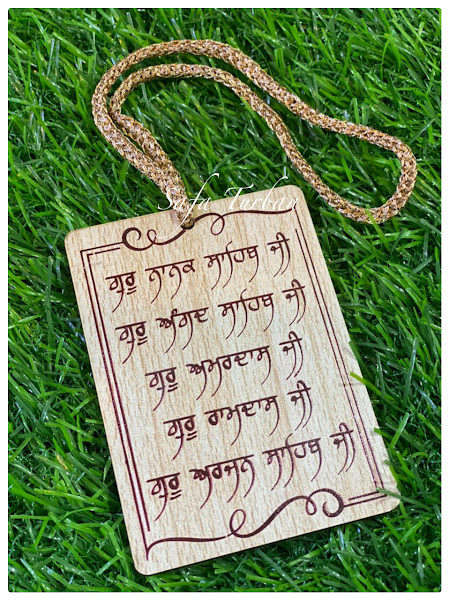 Safa Turban
ਗੁਰੂ ਨਾਨਕ ਸਾਹਿਬ ਜੀ
ਗੁਰੂ ਅੰਗਦ ਸਾਹਿਬ ਜੀ
ਗੁਰੂ ਅਮਰਦਾਸ ਜੀ
ਗੁਰੂ ਰਾਮਦਾਸ ਜੀ
ਗੁਰੂ ਅਰਜਨ ਸਾਹਿਬ ਜੀ